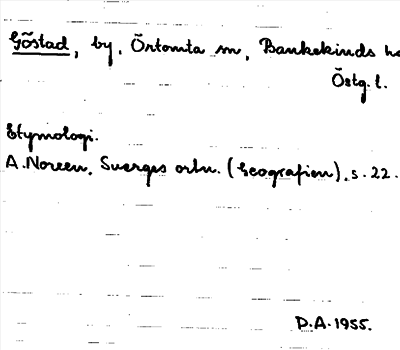 Göstad, by, Örtomta sn, Bankekinds
Östg. l.
Etymologi.
A. Noreen, Sverges ortn. (Geografien), s. 22.
D.A. 1955.